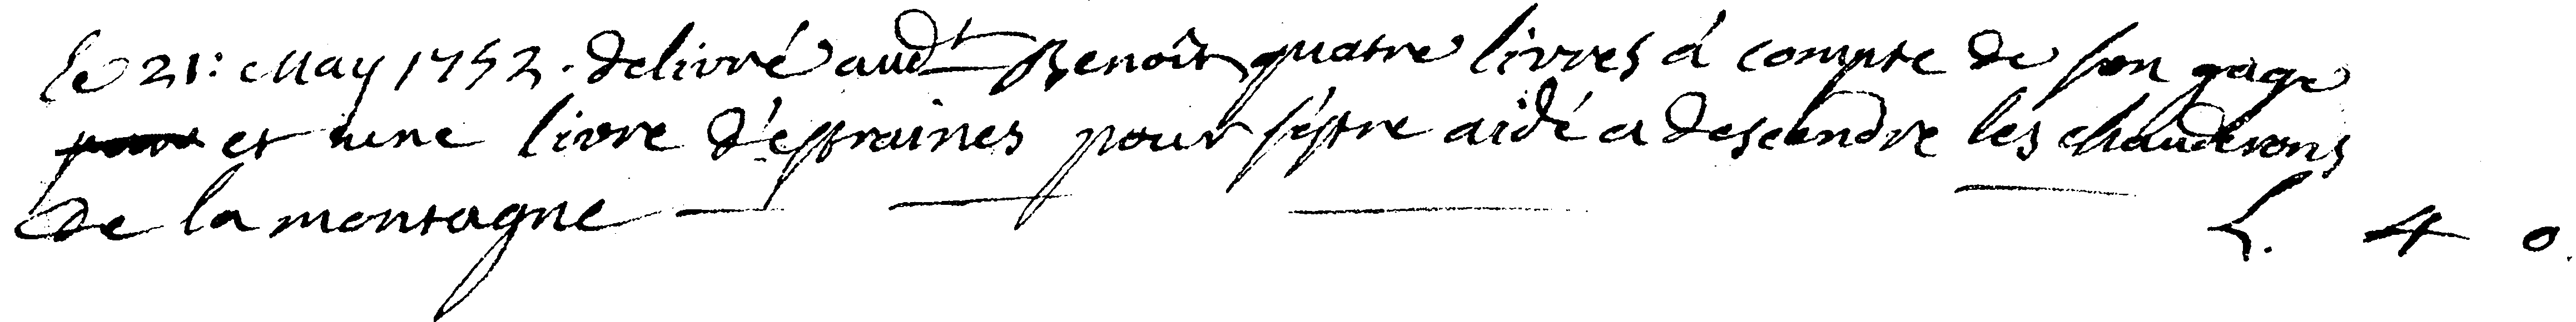 le 21: May 1752. delivré aud.t Benoît quatre livres á compte de son gage
et une livre d'estraines pour s'éstre aidé a descendre les chauderons
de la montagne L. 4 0.